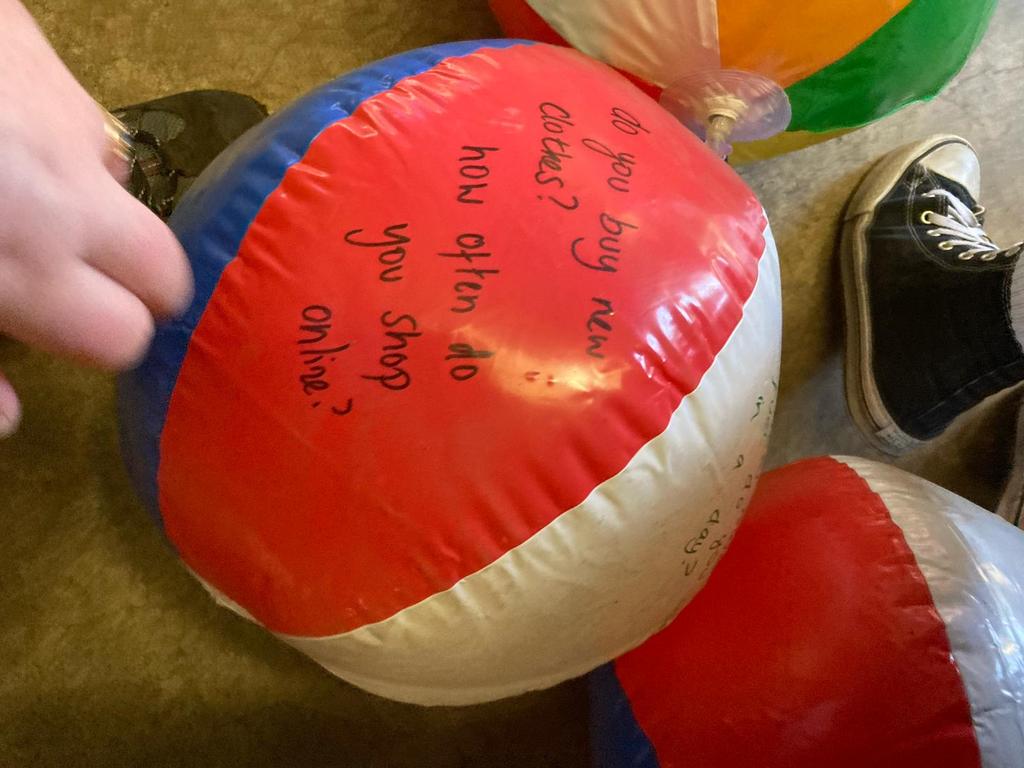 do you buy new
clothes?
how often do
you shop
online?
in a
day?